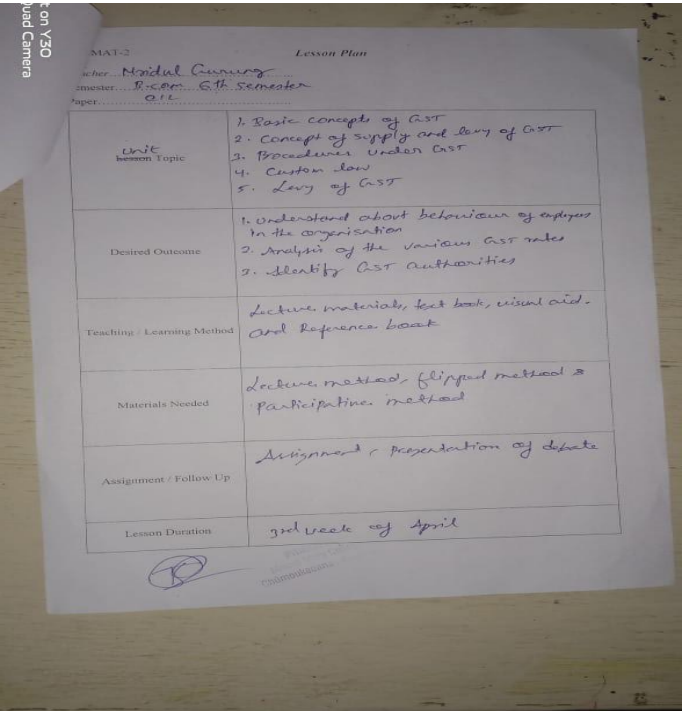 t on Y30
Quad Camera
MAT-2
Lesson Plan
cher Mridul Gurung
emester B.com 6th Semester
Paper OIL
Unit
Lesson Topic
1. Basic concepts of GST
2. Concept of supply and levy of GST
3. Procedures under GST
4. Custom law
5. Levy of GST
Desired Outcome
1. Understand about behaviour of employees
in the organisation
2. Analysis of the various GST rates
3. Identify GST authorities
Teaching / Learning Method
Lecture, materials, text book, visual aid.
and Reference book
Materials Needed
Lecture, method, flipped method &
Participative method
Assignment / Follow Up
Assignment, presentation of debate
Lesson Duration
3rd week of April